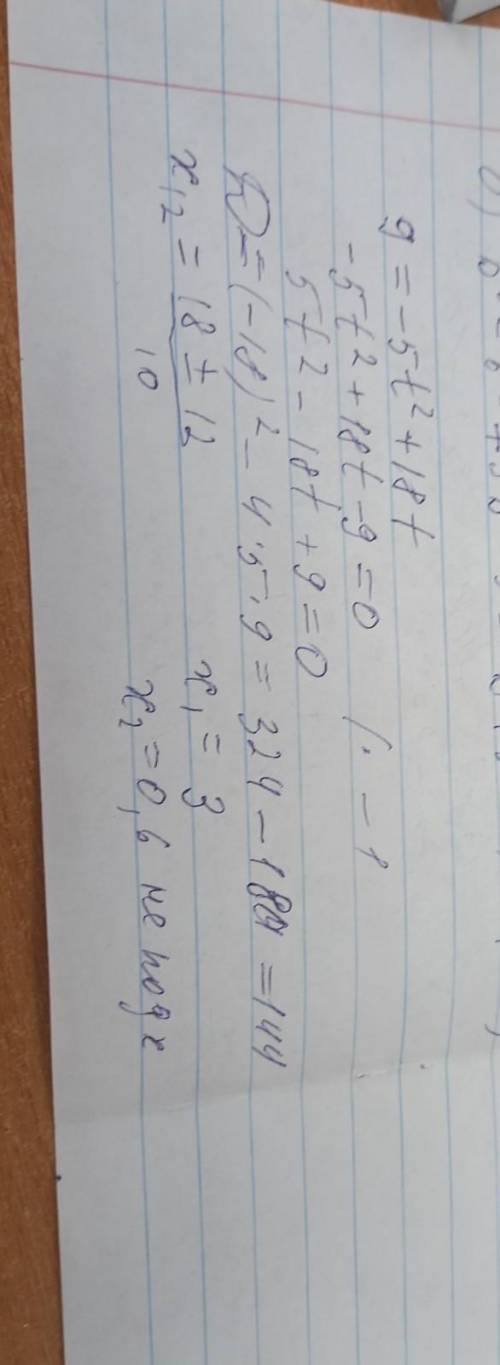 9 = -5t² + 18t
-5t² + 18t - 9 = 0 / · -1
5t² - 18t + 9 = 0
D = (-18)² - 4·5·9 = 324 - 180 = 144
x₁,₂ = (18 ± 12)/10 x₁ = 3
x₂ = 0,6 не подх